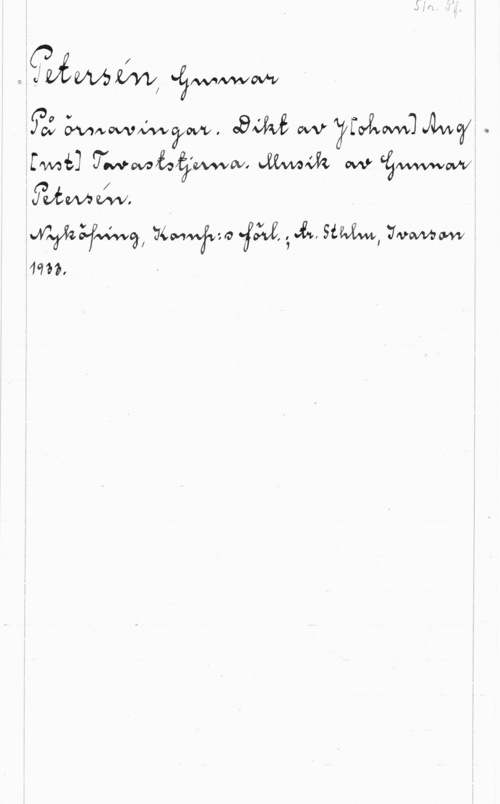 Petersén, Gunnar
På örnavingar. Dikt av J[ohan] Aug
[ust] Tavaststjerna. Musik av Gunnar
Petersén.
Nyköping, Komp:s förl.; tr. Sthlm, Ivarson
1933.